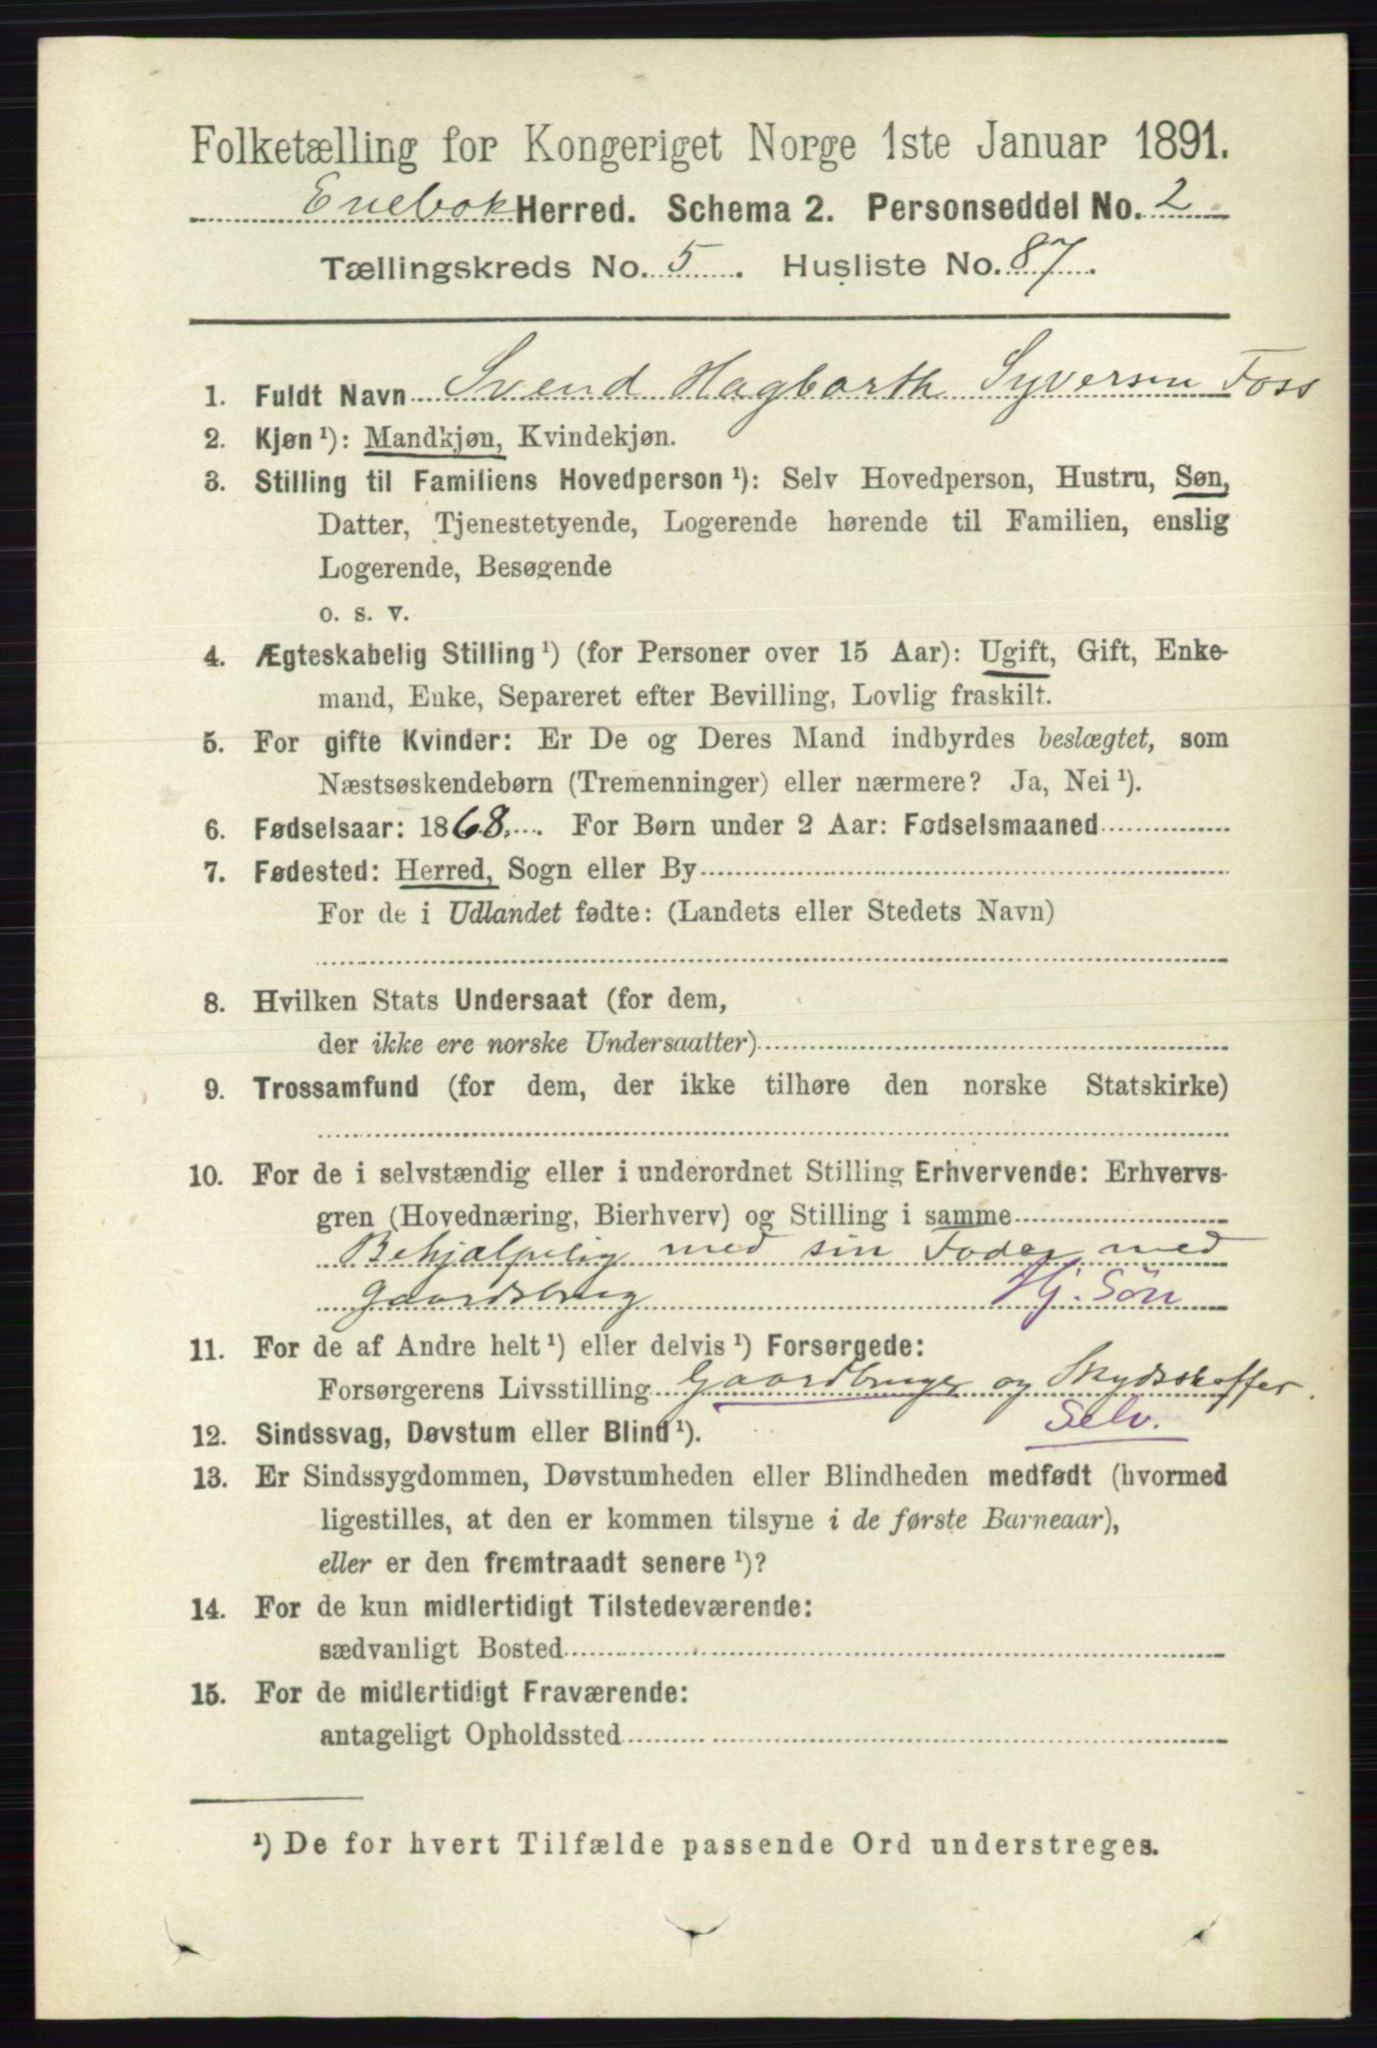 Folketælling for Kongeriget Norge 1ste Januar 1891.
Enebok Herred. Schema 2. Personseddel No. 2
Tællingskreds No. 5. Husliste No. 87.
1. Fuldt Navn Svend Hagbarth Syversen Foss
2. Kjøn ¹): Mandkjøn, Kvindekjøn.
3. Stilling til Familiens Hovedperson ¹): Selv Hovedperson, Hustru, Søn,
Datter, Tjenestetyende, Logerende hørende til Familien, enslig
Logerende, Besøgende
o. s. v.
4. Ægteskabelig Stilling ¹) (for Personer over 15 Aar): Ugift, Gift, Enke-
mand, Enke, Separeret efter Bevilling, Lovlig fraskilt.
5. For gifte Kvinder: Er De og Deres Mand indbyrdes beslægtet, som
Næstsøskendebørn (Tremenninger) eller nærmere? Ja, Nei ¹).
6. Fødselsaar: 1868. For Børn under 2 Aar: Fødselsmaaned
7. Fødested: Herred, Sogn eller By
For de i Udlandet fødte: (Landets eller Stedets Navn)
8. Hvilken Stats Undersaat (for dem,
der ikke ere norske Undersaatter)
9. Trossamfund (for dem, der ikke tilhøre den norske Statskirke)
10. For de i selvstændig eller i underordnet Stilling Erhvervende: Erhvervs-
gren (Hovednæring, Bierhverv) og Stilling i samme
Behjælpelig med sin Fader med
Gaardsbrug Hj. Søn
11. For de af Andre helt ¹) eller delvis ¹) Forsørgede:
Forsørgerens Livsstilling Gaardbruger og Skydsskaffer.
Selv.
12. Sindssvag, Døvstum eller Blind ¹).
13. Er Sindssygdommen, Døvstumheden eller Blindheden medfødt (hvormed
ligestilles, at den er kommen tilsyne i de første Barneaar),
eller er den fremtraadt senere ¹)?
14. For de kun midlertidigt Tilstedeværende:
sædvanligt Bosted
15. For de midlertidigt Fraværende:
antageligt Opholdssted
¹) De for hvert Tilfælde passende Ord understreges.